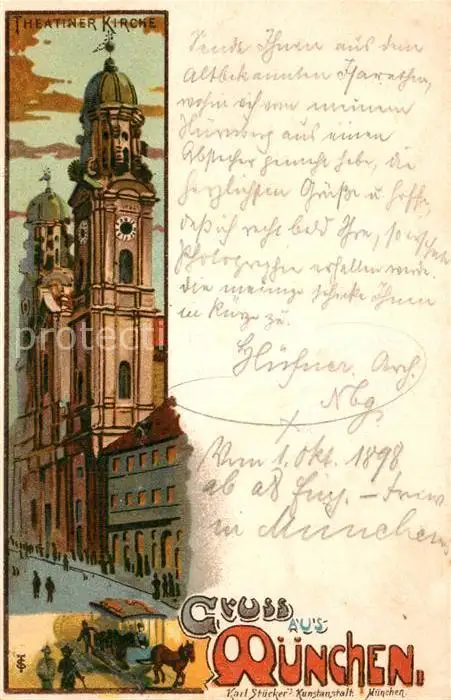 THEATINER KIRCHE
Sende Ihnen aus dem
altbekannten Isarathen,
wohin ich von meinem
Nürnberg aus einen
Abstecher gemacht habe, die
herzlichsten Grüße u. hoffe,
daß ich recht bald Ihre,
Photographie erhalten werde.
die meinige schicke Ihnen
in Kürze zu.
Hüfner, Arch.
Nbg.
Vom 1. Okt. 1898
ab als
in München
GRUSS
AUS
MÜNCHEN.
Karl Stücker's Kunstanstalt München
protect